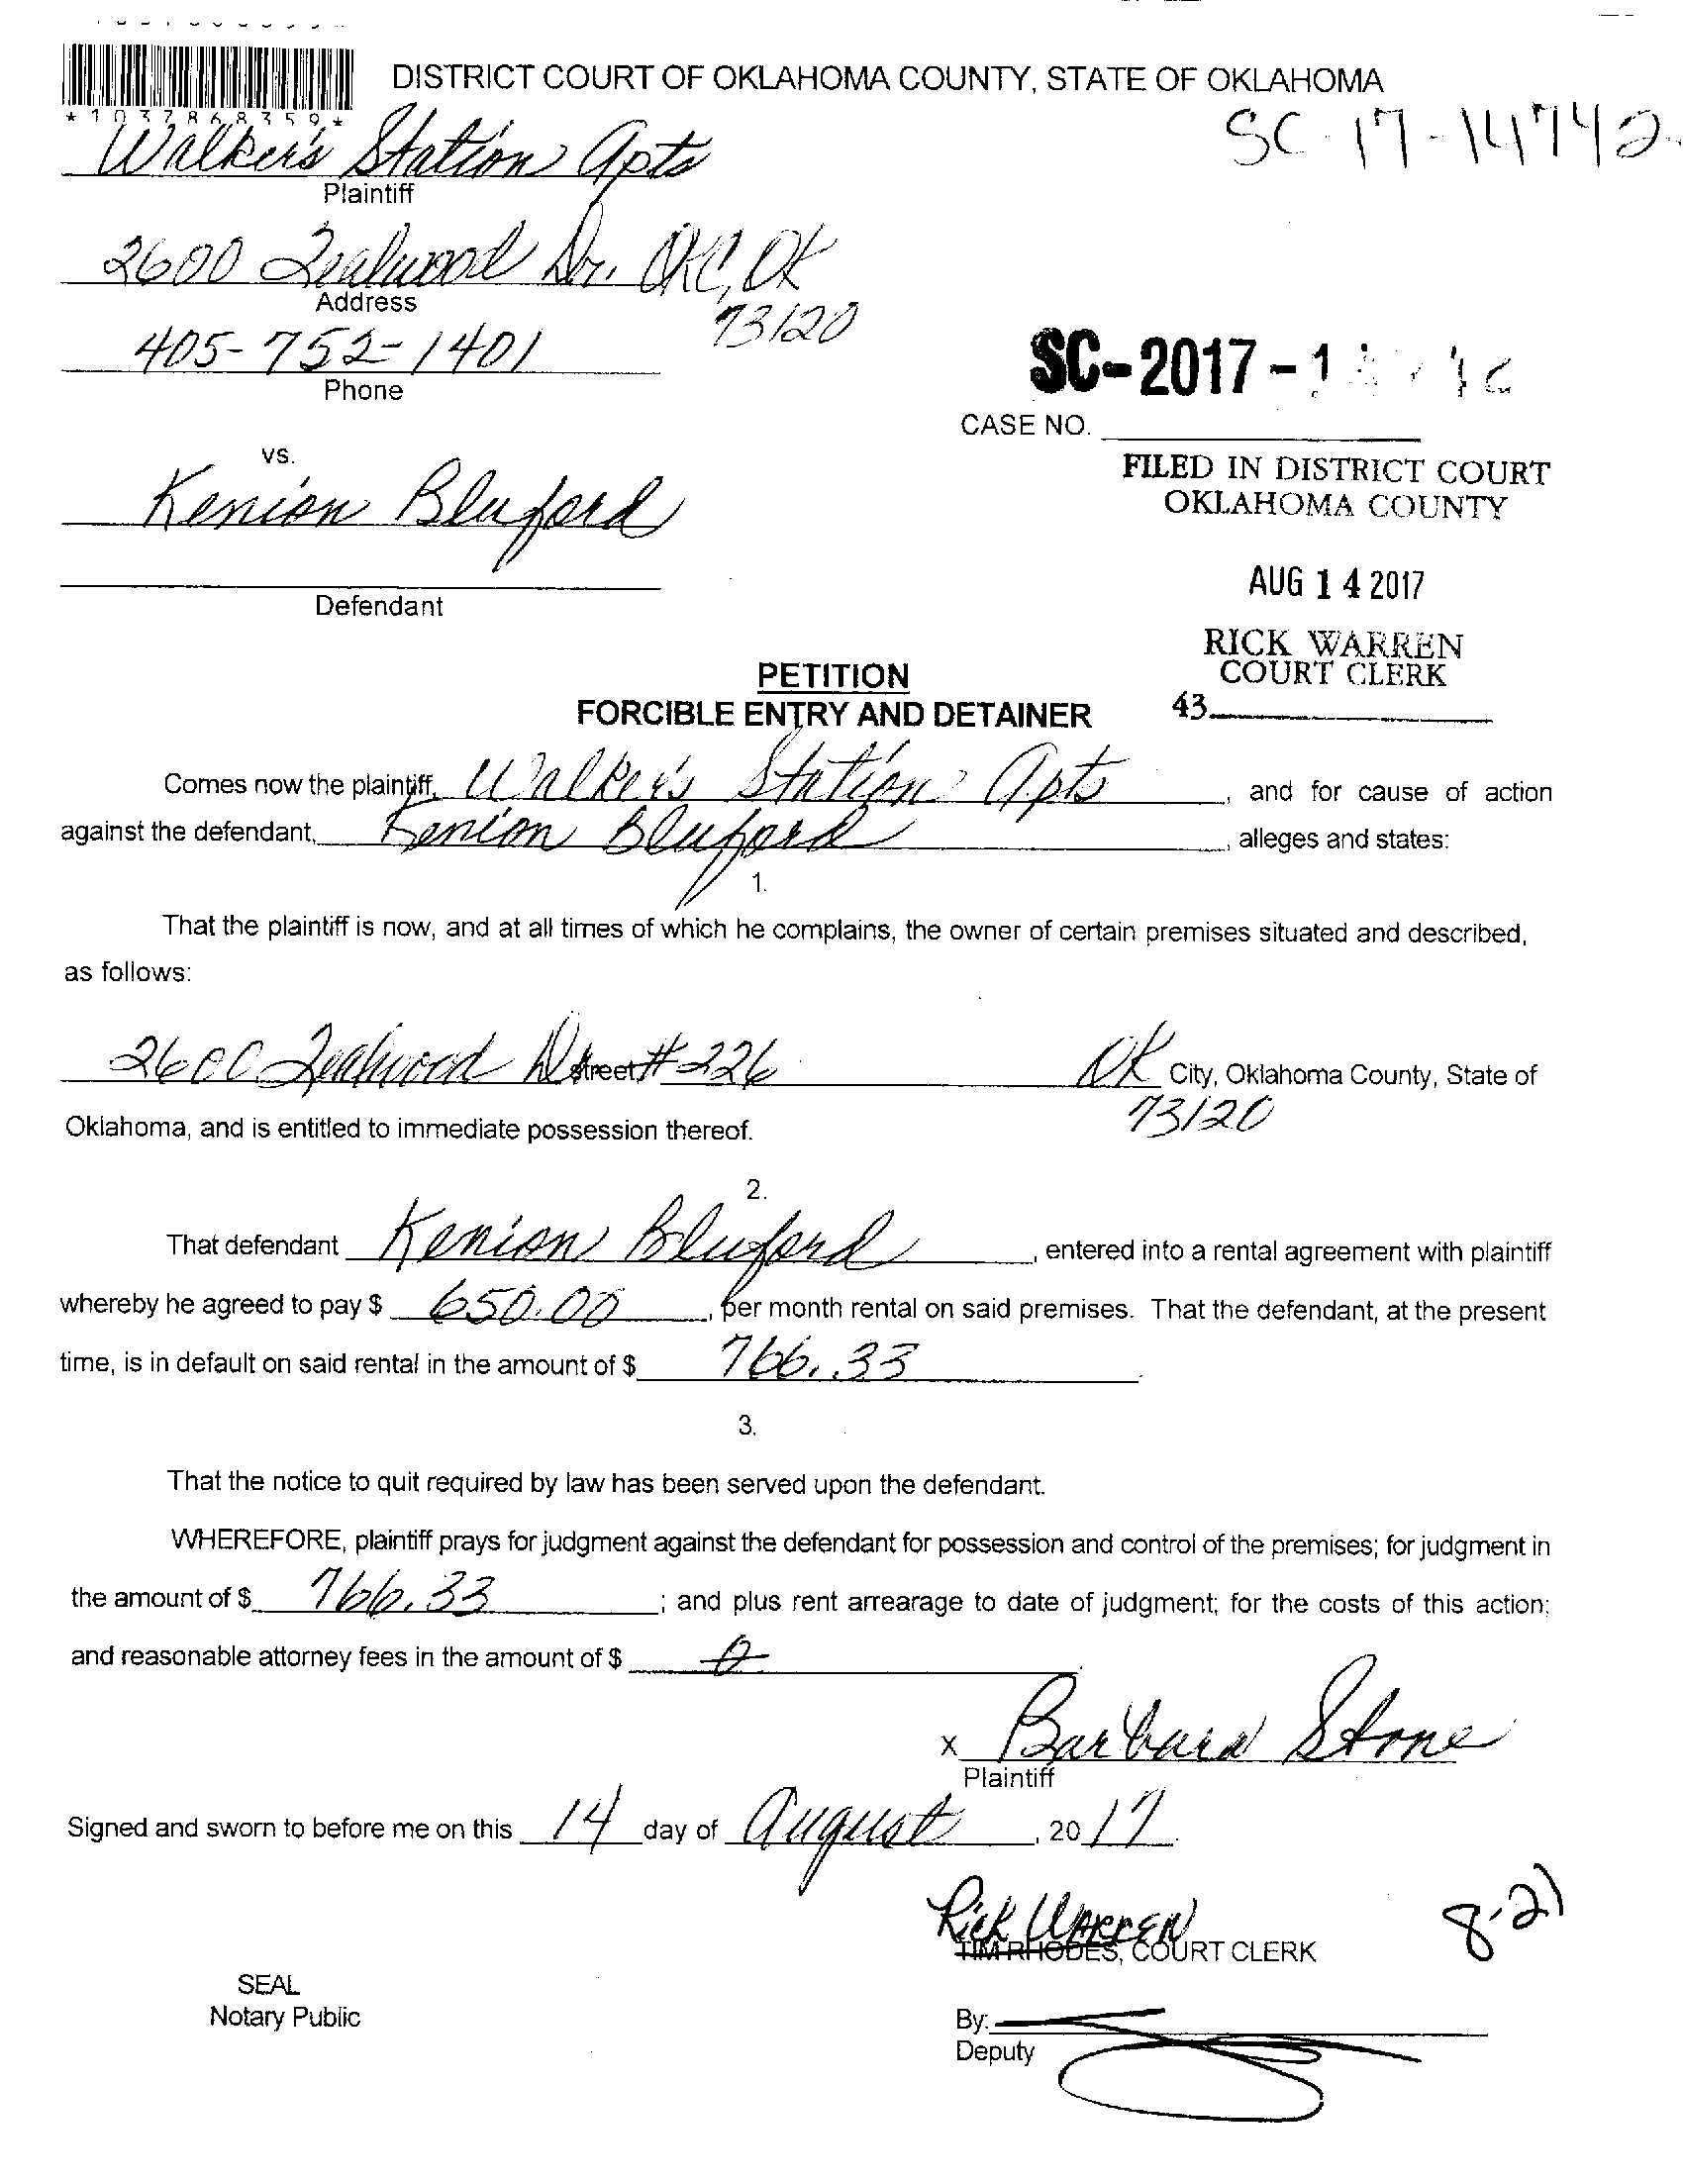 DISTRICT COURT OF OKLAHOMA COUNTY, STATE OF OKLAHOMA
*1037868359*
SC-17-14742
Walker's Station Apts
Plaintiff
2600 Tealwood Dr. OKC, OK
73120
Address
405-752-1401
Phone
SC-2017-1
CASE NO.
vs.
FILED IN DISTRICT COURT
OKLAHOMA COUNTY
Kenion Bluford
AUG 14 2017
Defendant
RICK WARREN
COURT CLERK
43
PETITION
FORCIBLE ENTRY AND DETAINER
Comes now the plaintiff, Walker's Station Apts, and for cause of action
against the defendant, Kenion Bluford, alleges and states:
1.
That the plaintiff is now, and at all times of which he complains, the owner of certain premises situated and described,
as follows:
2600 Tealwood Dr street # 226 OK City, Oklahoma County, State of
73120
Oklahoma, and is entitled to immediate possession thereof.
2.
That defendant Kenion Bluford, entered into a rental agreement with plaintiff
whereby he agreed to pay $ 650.00, per month rental on said premises. That the defendant, at the present
time, is in default on said rental in the amount of $ 766.33
3.
That the notice to quit required by law has been served upon the defendant.
WHEREFORE, plaintiff prays for judgment against the defendant for possession and control of the premises; for judgment in
the amount of $ 766.33; and plus rent arrearage to date of judgment; for the costs of this action;
and reasonable attorney fees in the amount of $ 0
x Barbara Stone
Plaintiff
Signed and sworn to before me on this 14 day of August, 2017
Rick WARREN
TIM RHODES, COURT CLERK
8-21
SEAL
Notary Public
By:
Deputy